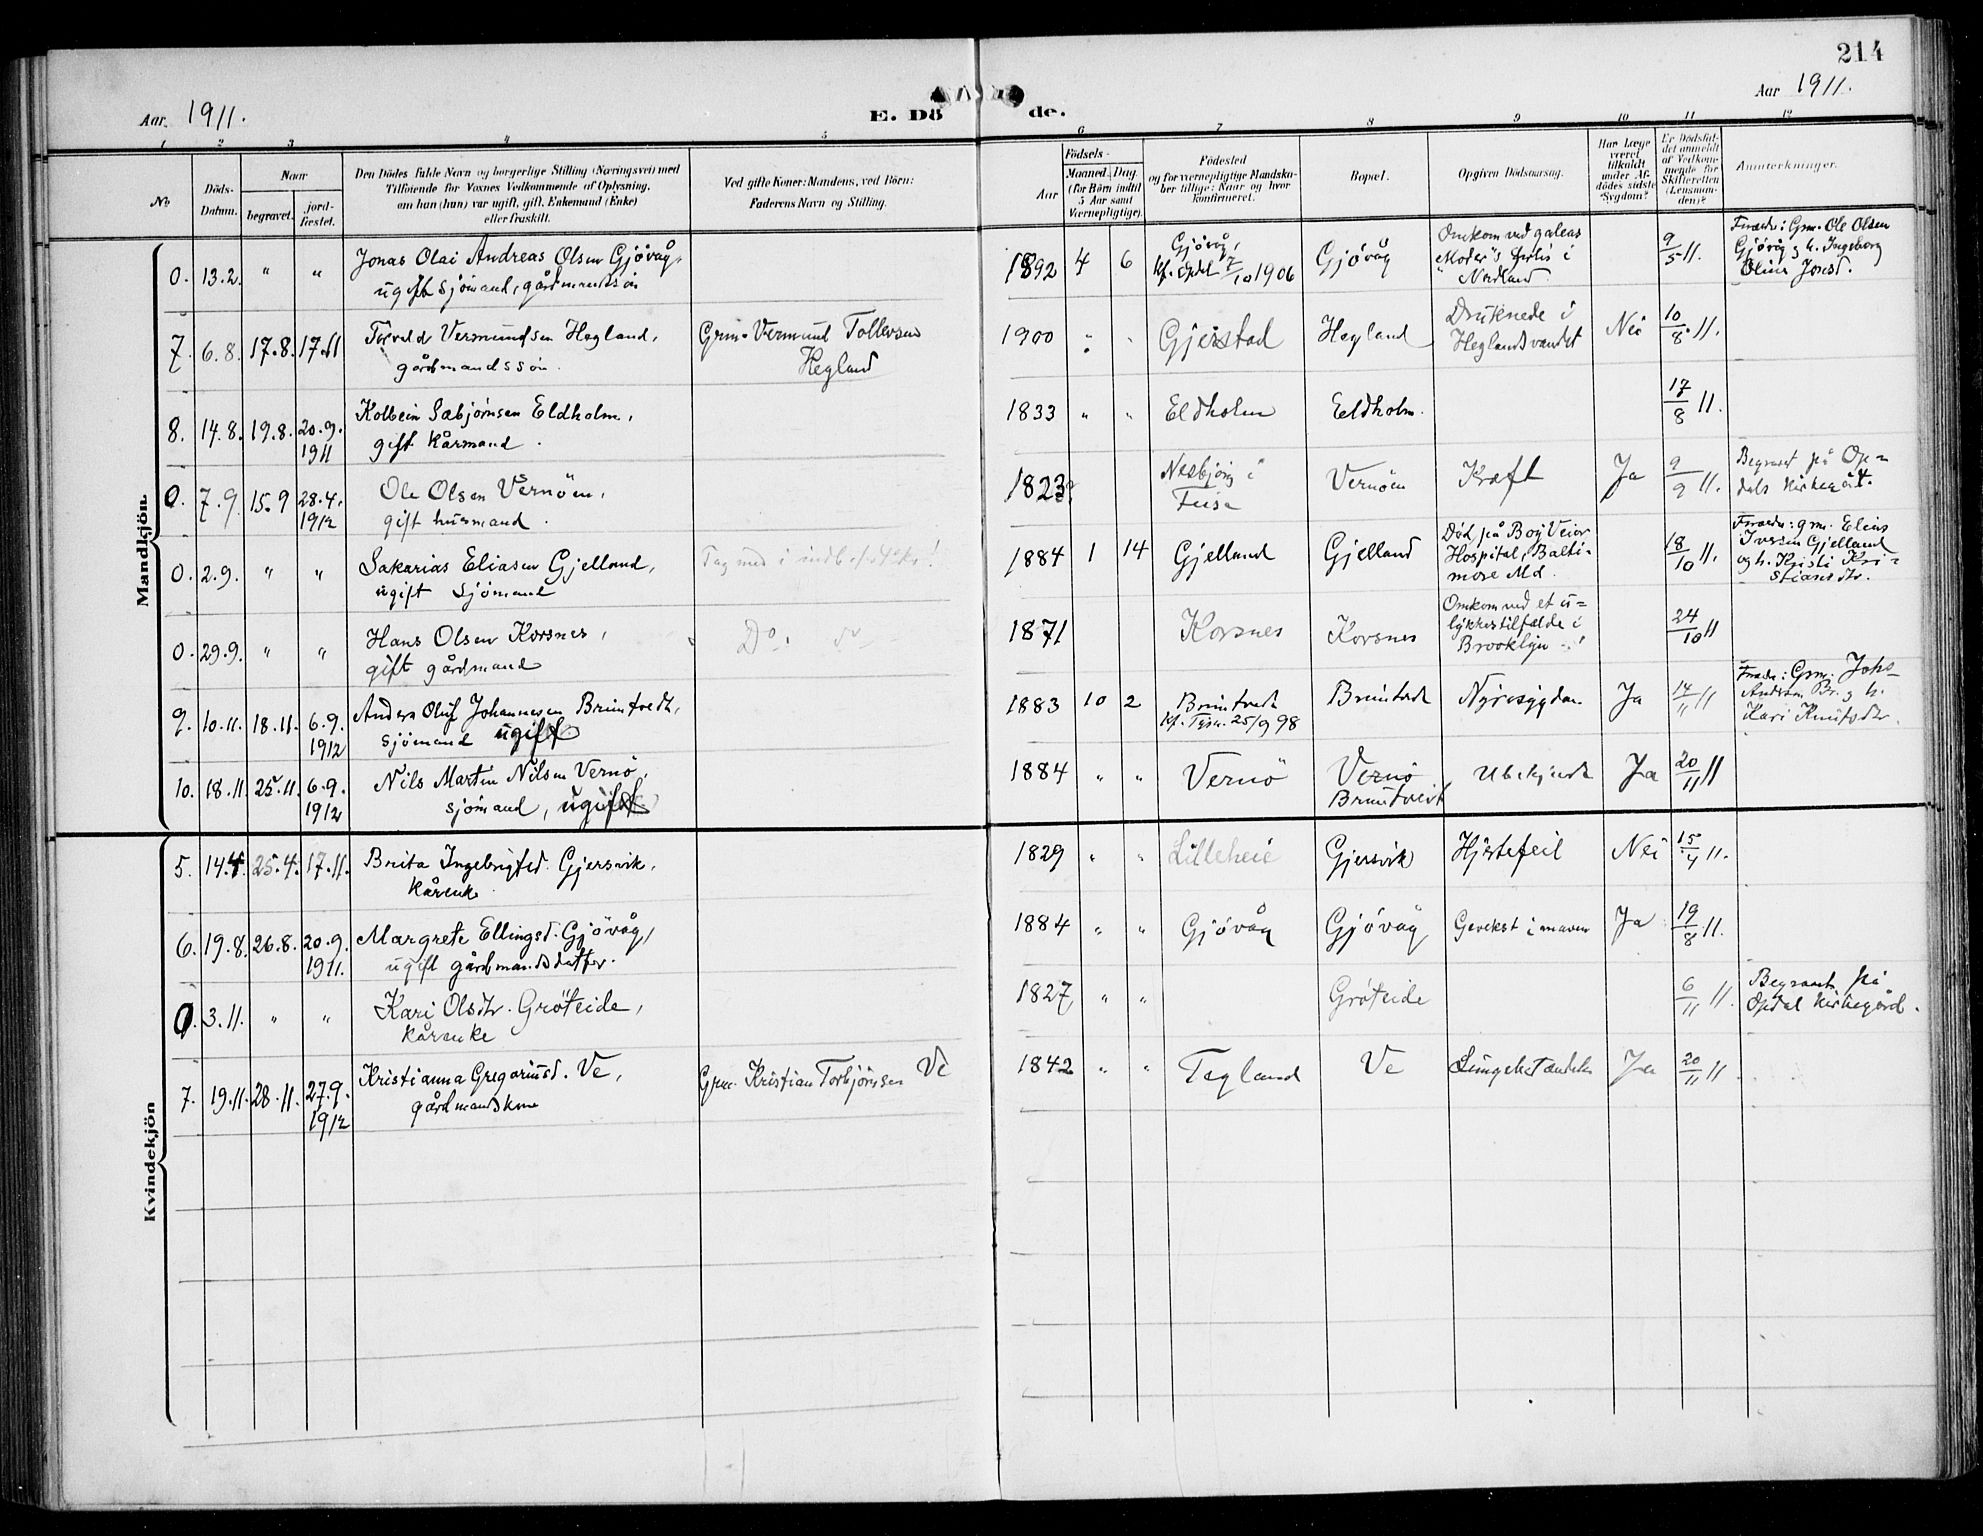 214
Aar 1911.
E. Döde.
Aar 1911.
1 2 3 4 5 6 7 8 9 10 11 12
No
Döds-
Datum.
Naar
begravet.
jord-
fæstet.
Den Dödes fulde Navn og borgerlige Stilling (Næringsvei) med
Tilföiende for Voxnes Vedkommende af Oplysning,
om han (hun) var ugift, gift, Enkemand (Enke)
eller fraskilt.
Ved gifte Koner: Mandens, ved Börn:
Faderens Navn og Stilling.
Födsels-
Aar
Maaned. Dag.
(for Börn indtil
5 Aar samt
Værnepligtige).
Födested
og for værnepligtige Mandska-
ber tillige: Naar og hvor
konfirmeret.
Bopæl.
Opgiven Dödsaarsag.
Har Læge
været
tilkaldt
under Af-
dödes sidste
Sygdom?
Er Dödsfal-
det anmeldt
af Vedkom-
mende for
Skifteretten
(Lensman-
den)?
Anmærkninger.
Mandkjön.
0. 13.2. " " Jonas Olai Andreas Olsen Gjövåg,
ugift sjömand, gårdmandssön
1892 4 6 Gjövåg,
kf. Opdal 7/10 1906
Gjövåg
Omkom ved galeas
"Moder"s forlis i
Nordland.
9/5 11.
Foræld: Grm. Ole Olsen
Gjövåg og h. Ingeborg
Oline Jonsd.
7. 6.8. 17.8. 17.11 Torvald Vermundsen Hegland,
gårdmandssön.
Grm. Vermund Tollevsen
Hegland
1900 " " Gjerstad Hegland
Druknede i
Heglandsvandet
Nei 10/8 11.
8. 14.8. 19.8. 20.9.
1911
Kolbein Sæbjörnsen Eldholm,
gift kårmand.
1833 " " Eldholm Eldholm. 17/8 11.
0. 7.9. 15.9 28.4.
1912
Ole Olsen Vernöen,
gift husmand.
1823 Nesbjörg i
Fuse
Vernöen Kræft Ja 9/9 11.
Begravet på Op-
dals kirkegård.
0. 2.9. " " Sakarias Eliasen Gjelland,
ugift sjömand
Tag med i
1884 1 14 Gjelland Gjelland
Död på Bay View
Hospital, Balti-
more Md.
18/10 11.
Foræld: grm. Elias
Iversen Gjelland
og h. Kristi Kri-
stiansdtr.
0. 29.9. " " Hans Olsen Korsnes,
gift gårdmand
Do.
1871 Korsnes Korsnes
Omkom ved et u-
lykkestilfælde i
Brooklyn
24/10 11
9. 10.11. 18.11. 6.9.
1912
Anders Oluf Johannesen Bruntvedt,
sjömand ugift
1883 10 2 Bruntvedt
kf. Tysn. 25/9 98
Bruntvedt Nyresygdom Ja 14/11 11
Foræld: Grm. Johs
Andersen Br. og h.
Kari Knutsdtr.
10. 18.11. 25.11. 6.9.
1912
Nils Martin Nilsen Vernö,
sjömand, ugift
1884 " " Vernö Vernö
Bruntveit
Ubekjendt Ja 20/11 11
Kvindekjön
5. 14.4 25.4. 17.11. Brita Ingebrigtsd. Gjersvik,
kårenk.
1829 " " Lilleheie Gjersvik Hjertefeil Nei 15/4 11.
6. 19.8. 26.8. 20.9.
1911.
Margrete Ellingsd. Gjövåg,
ugift gårdmandsdatter.
1884 " " Gjövåg Gjövåg Gevekst i maven Ja 19/8 11.
0. 3.11. " " Kari Olsdtr. Gröteide,
kårenke
1827 " " Gröteide 6/11 11.
Begravet på
Opdal kirkegård.
7. 19.11. 28.11. 27.9.
1912
Kristianna Gregoriusd. Ve,
gårdmandskone
Grm. Kristian Torbjörnsen Ve
1842 " " Tegland Ve Lungebetændelse Ja 20/11 11.